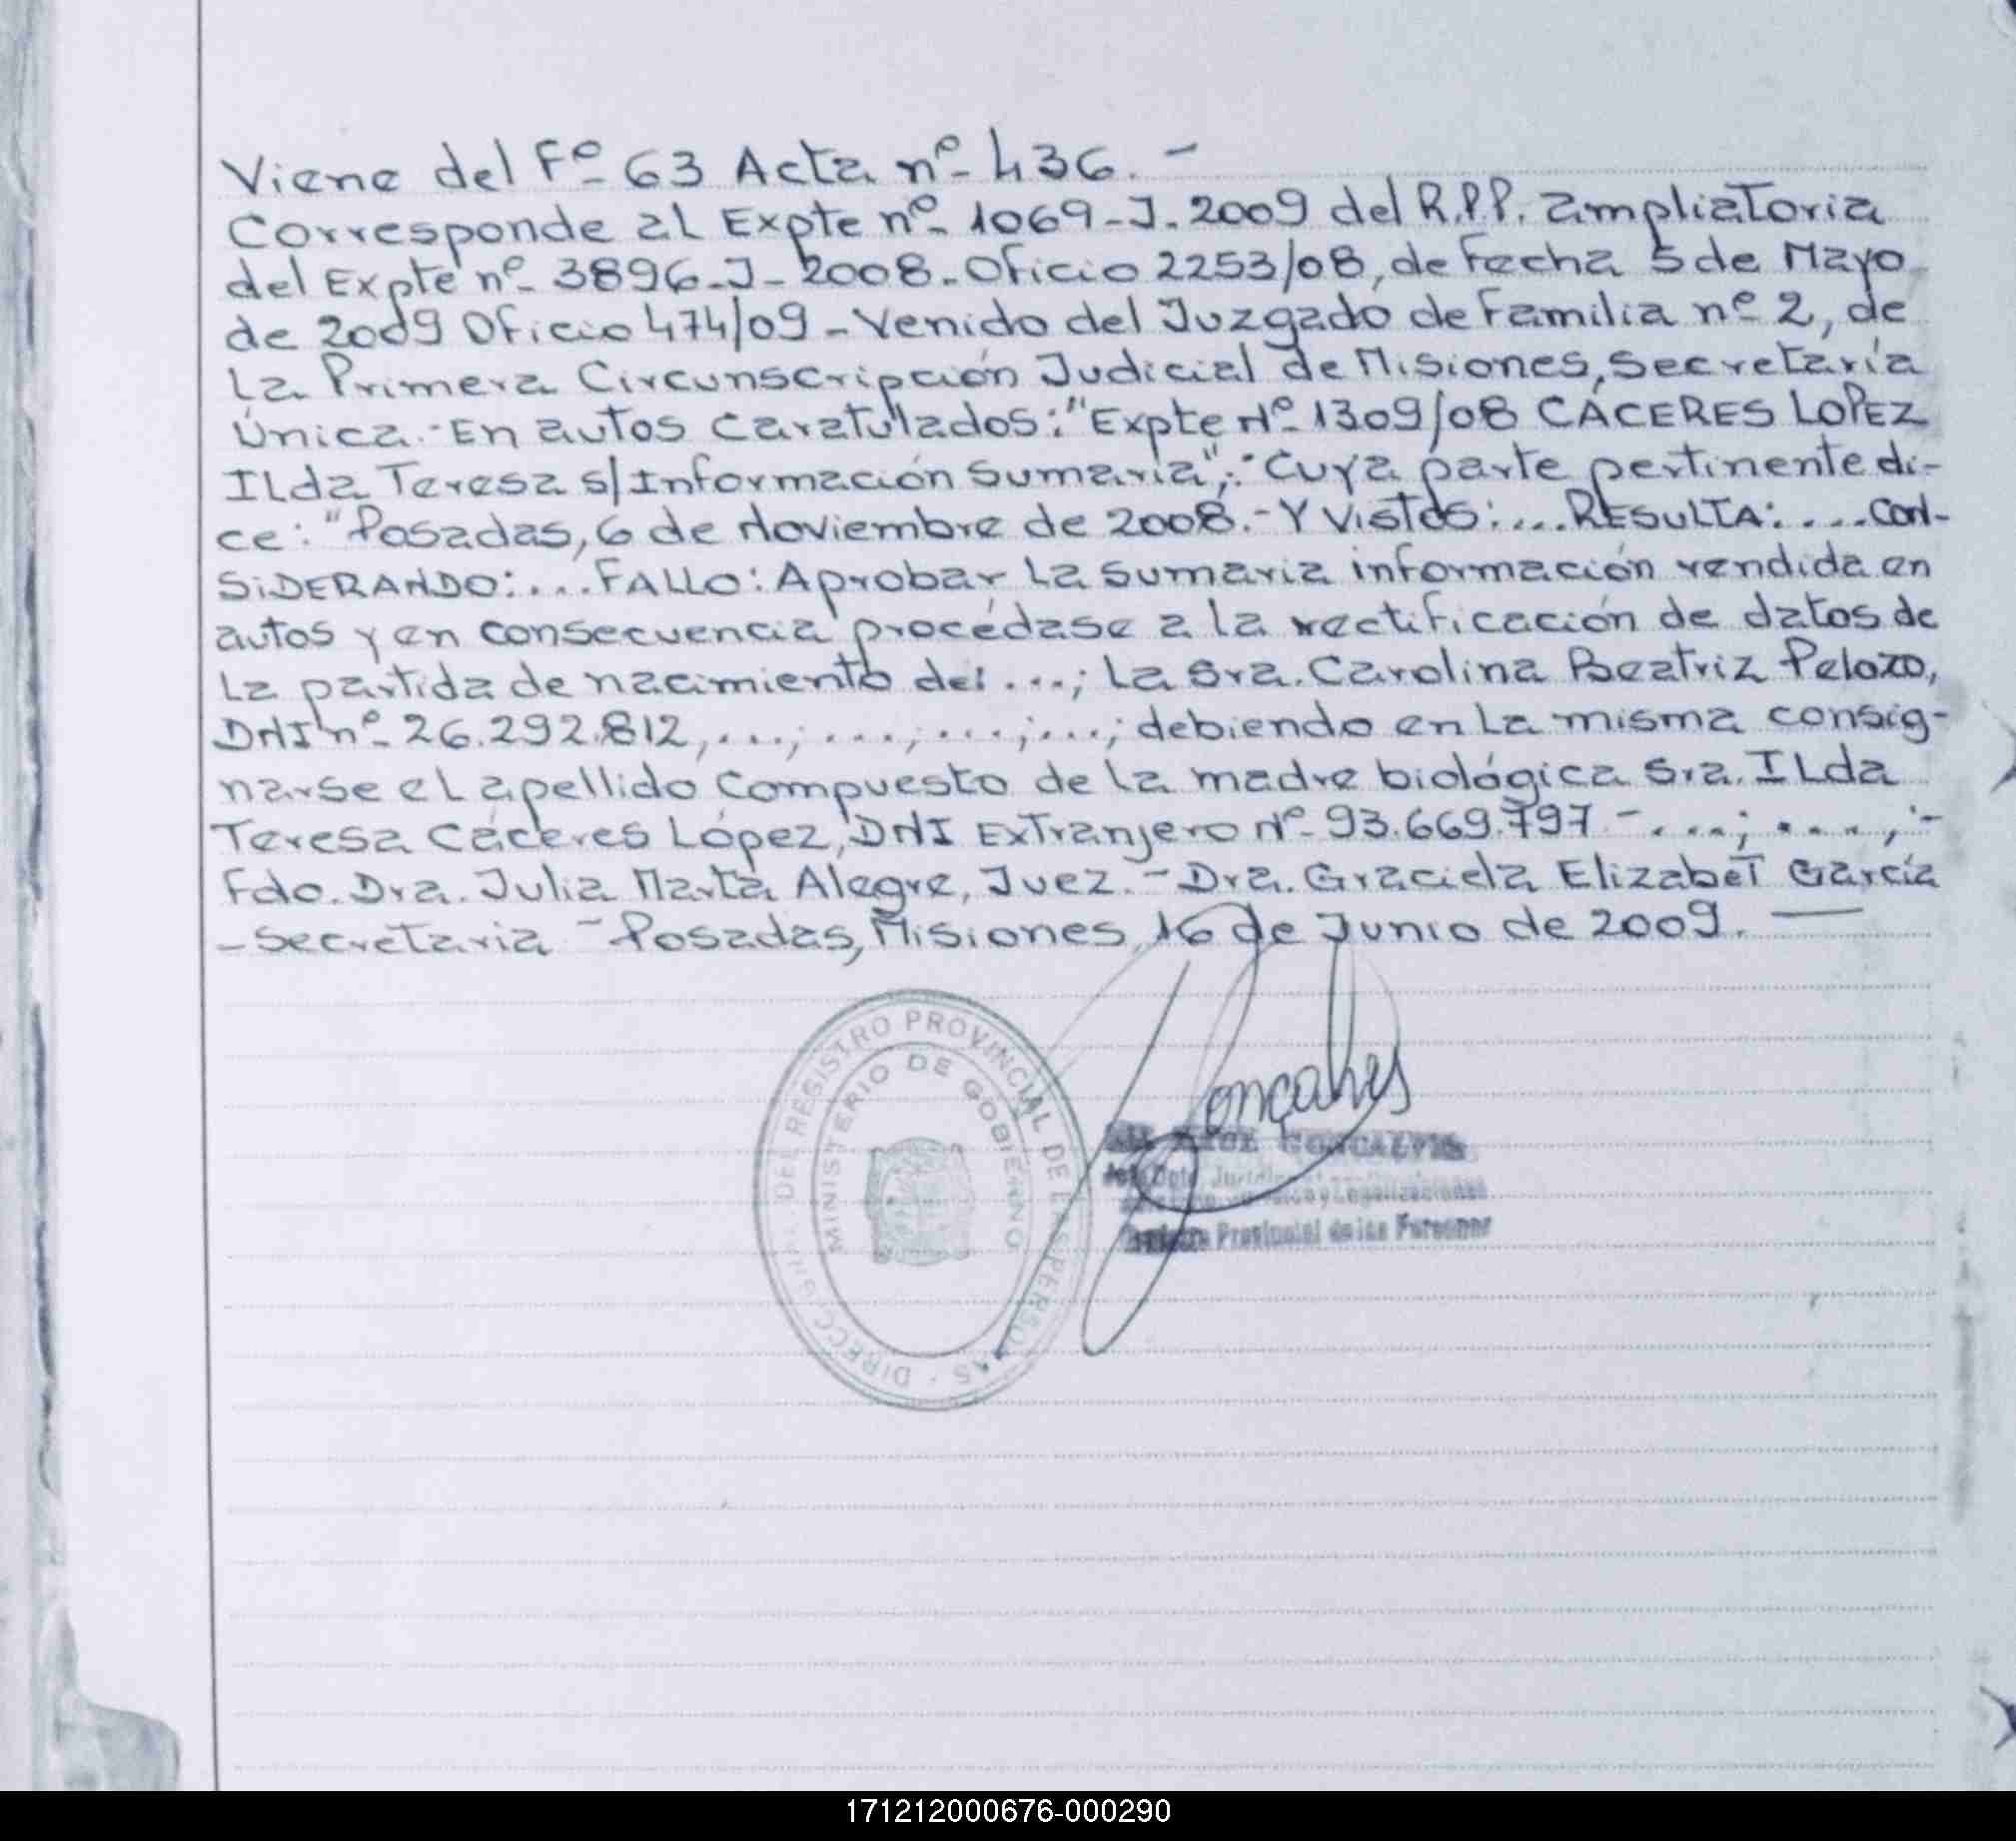 Viene del Fº 63 Acta nº 436.-
Corresponde al Expte nº 1069-J-2009 del R.P.P. ampliatoria
del Expte nº 3896-J-2008-Oficio 2253/08, de fecha 5 de Mayo
de 2009 Oficio 474/09 - Venido del Juzgado de Familia nº 2, de
La Primera Circunscripción Judicial de Misiones, Secretaría
Única.- En autos caratulados: "Expte Nº 1309/08 CÁCERES LOPEZ
ILda Teresa s/Información Sumaria", : Cuya parte pertinente di-
ce: "Posadas, 6 de Noviembre de 2008.- Y Vistos: ... RESULTA: .... CON-
SIDERANDO: ... FALLO: Aprobar la sumaria información rendida en
autos y en consecuencia procédase a la rectificación de datos de
La partida de nacimiento de: ...; La Sra. Carolina Beatriz Pelozo,
DNI nº 26.292.812, ...; ...; ...; ...; debiendo en La misma consig-
narse el apellido compuesto de la madre biológica Sra. ILda
Teresa Cáceres López, DNI Extranjero Nº 93.669.797 - ...; ....,.-
Fdo. Dra. Julia Marta Alegre, Juez.- Dra. Graciela Elizabet García
-Secretaria - Posadas, Misiones, 16 de Junio de 2009.
DIRECC. GRAL. DEL REGISTRO PROVINCIAL DE LAS PERSONAS
MINISTERIO DE GOBIERNO
Goncalves
GONCALVES
Dpto.
y Legalizaciones
Provincial de las Personas
171212000676-000290